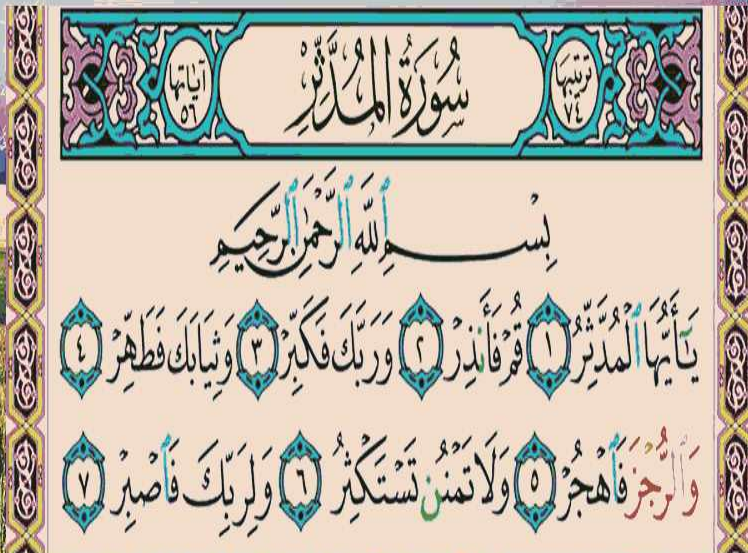 ترتيبها ٧٤
سُورَةُ المُدَّثِّرِ
آياتها ٥٦
بِسْمِ ٱللَّهِ ٱلرَّحْمَٰنِ ٱلرَّحِيمِ
يَٰٓأَيُّهَا ٱلْمُدَّثِّرُ ١ قُمْ فَأَنذِرْ ٢ وَرَبَّكَ فَكَبِّرْ ٣ وَثِيَابَكَ فَطَهِّرْ ٤
وَٱلرُّجْزَ فَٱهْجُرْ ٥ وَلَا تَمْنُن تَسْتَكْثِرُ ٦ وَلِرَبِّكَ فَٱصْبِرْ ٧